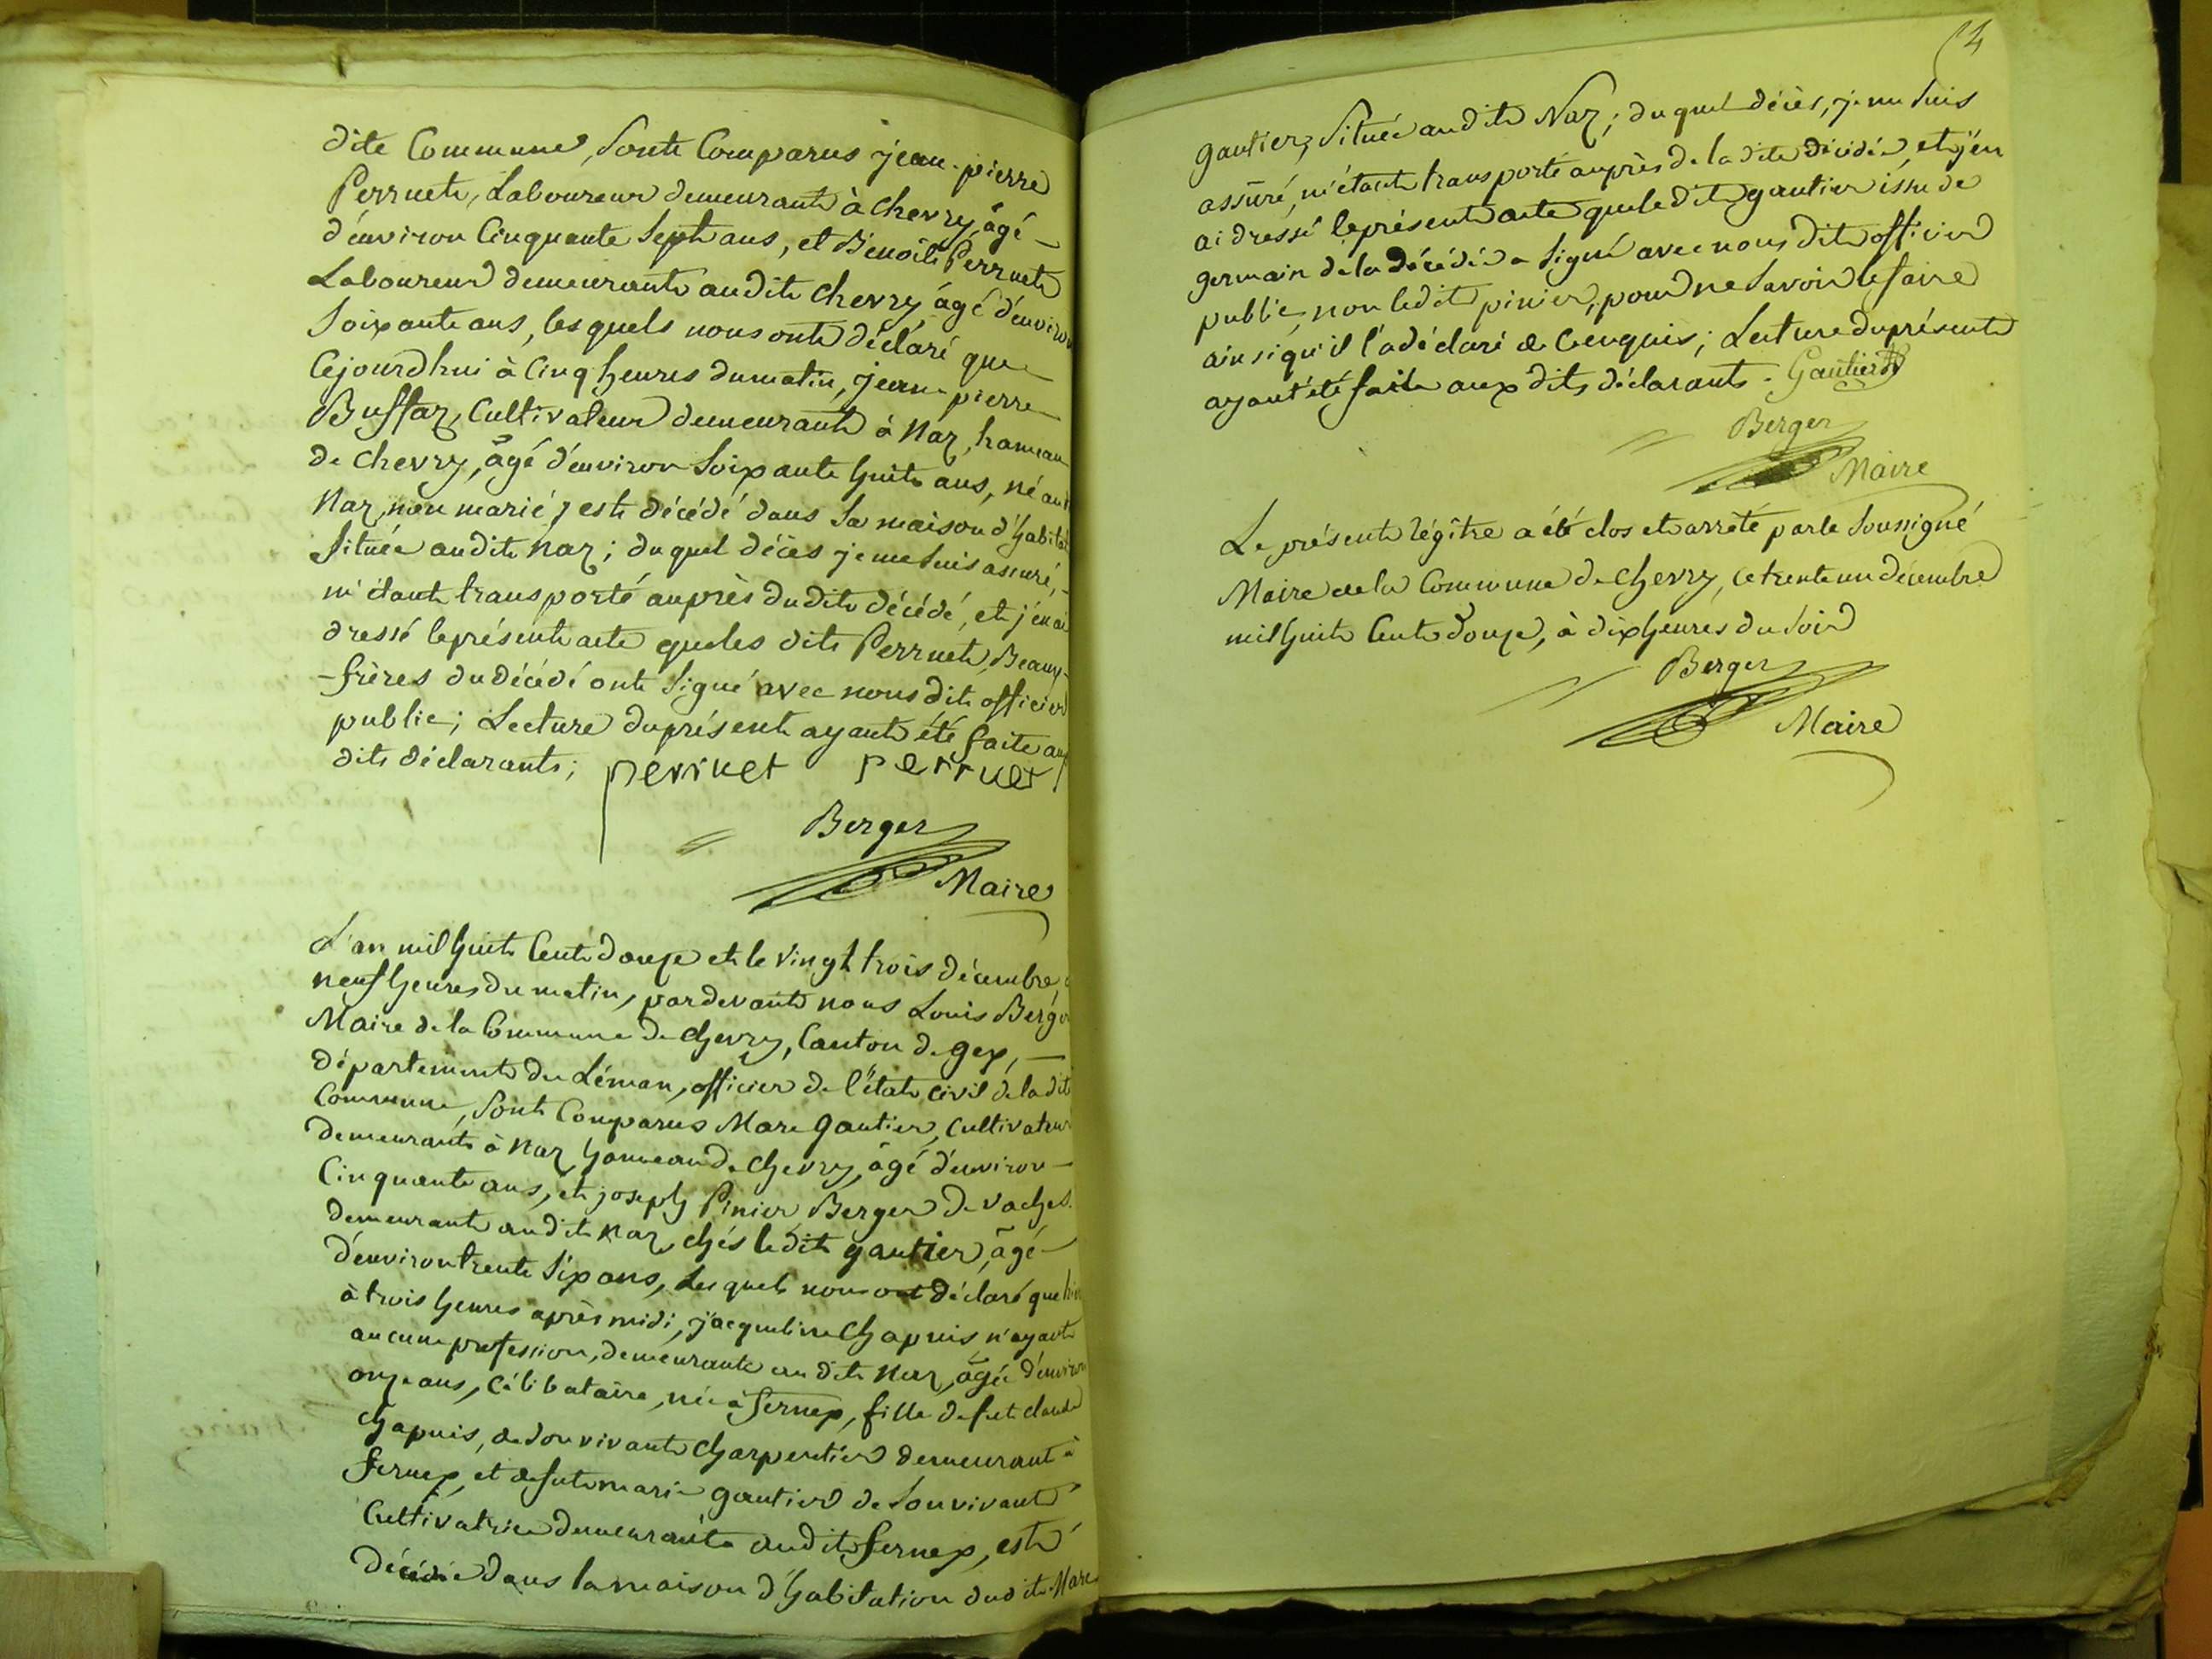 dite Commune, sont Comparus jean-pierre
Perruet, Laboureur demeurant à Chevry, âgé
d'environ Cinquante Sept ans, et Benoît Perruet
Laboureur demeurant audit Chevry âgé d'environ
Soixante ans, les quels nous ont déclaré que
Cejourdhui à Cinq heures du matin, jean-pierre
Buffaz, Cultivateur demeurant à Naz, hameau
de Chevry, âgé d'environ Soixante huit ans, né aud
Naz, non marié, est décédé dans Sa maison d'habita
Située audit Naz; duquel décès je me suis assuré,
m'étant transporté auprès dudit décédé, et j'en ai
dressé le présent acte que les dits Perruet, Beaux
-frères du décédé ont Signé avec nous dit officier
public; Lecture du présent ayant été faite aux
dits déclarants; perruet perruet
Berger
Maire
L'an mil huit Cent douze et le vingt trois décembre, à
neuf heures du matin, pardevant nous Louis Berger
Maire de la Commune de Chevry, Canton de gex,
département du Léman, officier de l'état civil de la dit
Commune, Sont Comparus Marc gautier, Cultivateur
demeurant à Naz, hameau de Chevry, âgé d'environ
Cinquante ans, et joseph Pinier, Berger de vaches
demeurant audit Naz, chés ledit gautier, âgé
d'environ trente Six ans, Les quels nous ont déclaré que hier
à trois heures après midi, jacqueline Chapuis, n'ayant
aucune profession, demeurante audit Naz, âgée d'environ
onze ans, Célibataire, née à fernex, fille de feu claude
Chapuis, de Son vivant Charpentier demeurant à
fernex, et de fut marie gautier de Son vivant
Cultivatrice demeurante audit fernex, est
décédée dans la maison d'habitation dudit Marc
14
gautier, Située audit Naz; duquel décès, je me suis
assuré, m'étant transporté auprès de la dite décédée, et j'en
ai dressé le présent acte que le dit gautier issu de
germain de la décédée a Signé avec nous dit officier
public, non ledit pinier, pour ne Savoir le faire
ainsi qu'il l'a déclaré de ce enquis; Lecture du présent
ayant été faite aux dits déclarants. Gautier
Berger
Maire
Le présent régître a été clos et arrêté par le Soussigné
Maire de la Commune de Chevry, Ce trente un décembre
mil huit Cent douze, à dix heures du Soir
Berger
Maire